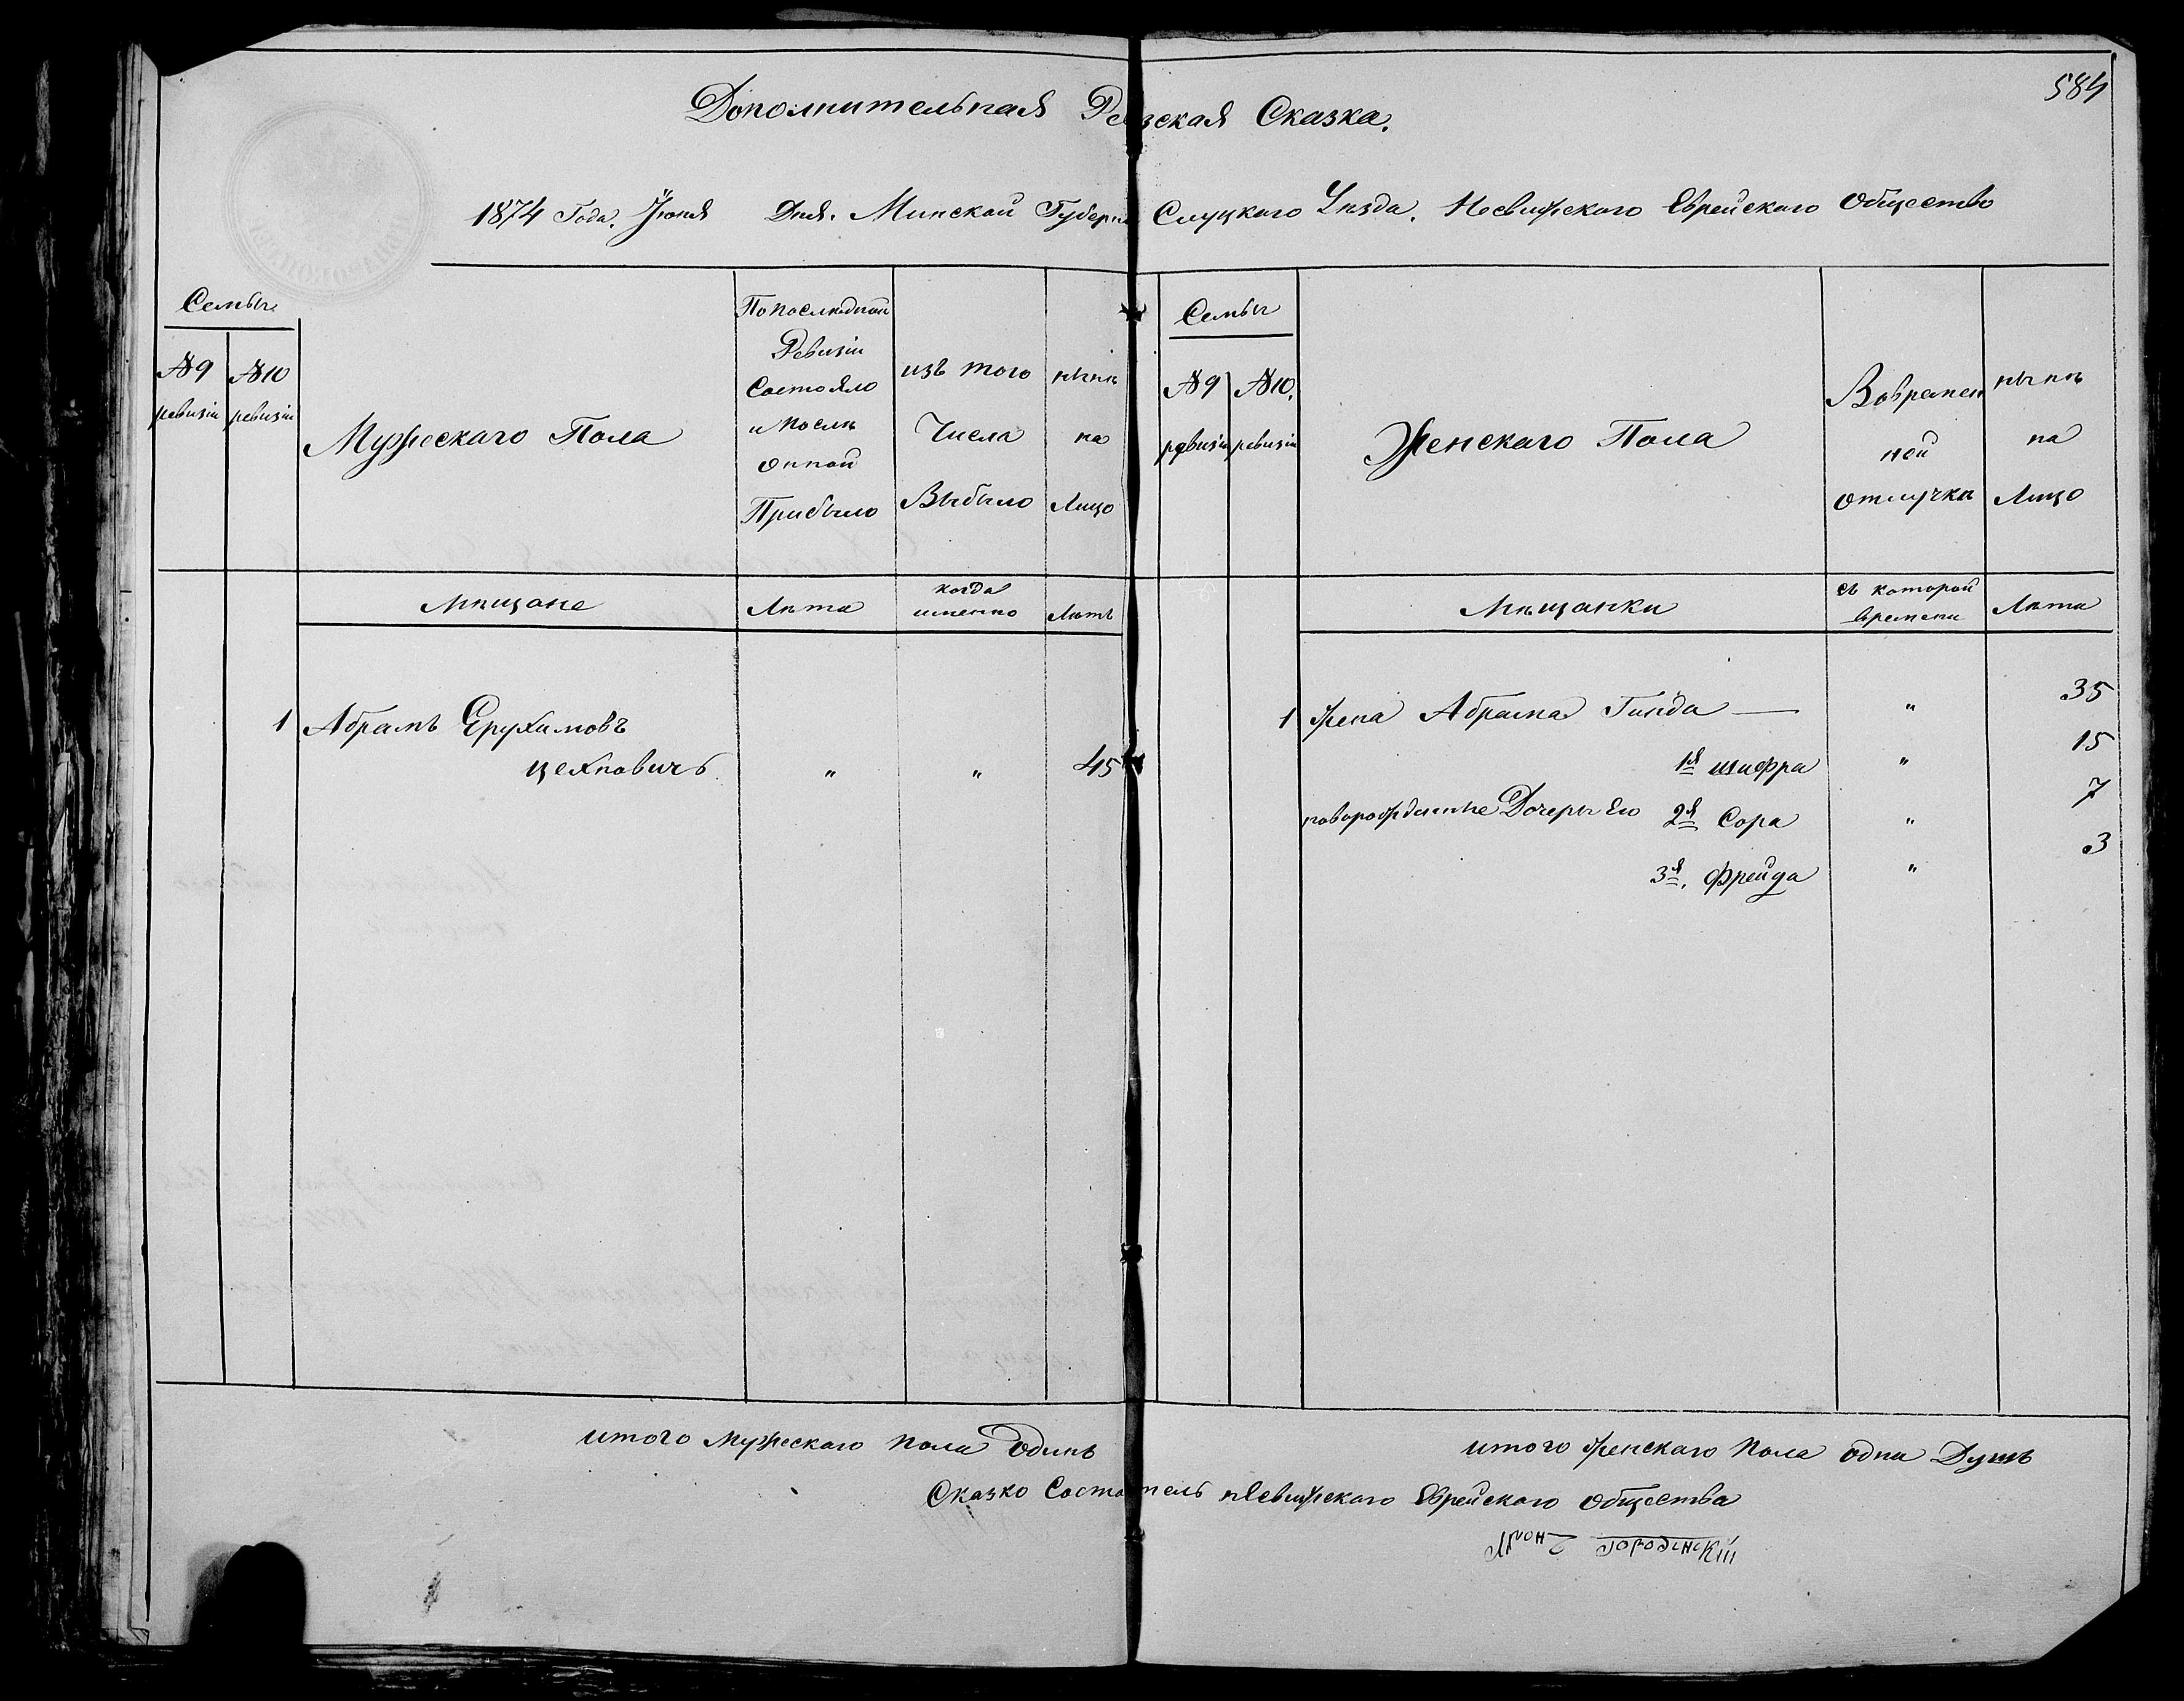 584
Дополнительная Ревзская Сказка.
1874 Года. Июня Дня. Минской Губерни Слуцкаго Уѣзда. Несвижскаго Еврейского Общество
Семьи
№ 9 ревизіи
№ 10 ревизіи
Мужескаго Пола
По послѣдной
Ревизіи
Состояло
и послѣ
онной
Прибыло
изъ того
Числа
Выбыло
нынѣ
на
Лицо
Семьи
№ 9 ревизіи
№ 10. ревизіи
Женскаго Пола
Вовремен
ной
отлучки
нынѣ
на
Лицо
Мѣщане
Лѣта
когда
именно
Лѣтъ
Мѣщанки
съ которой
времени
Лѣта
1 Абрамъ Ерухимовъ
Цехновичъ " " 45
1 Жена Абрама Гинда — " 35
1я Шифра " 15
новорожденные Дочеры Его 2я Сора " 7
3я. Фрейда " 3
итого мужескаго пола Одинъ
итого женскаго пола одна Душъ
Сказко Состоятель Несвижскаго Еврейского Общества
Городинскій